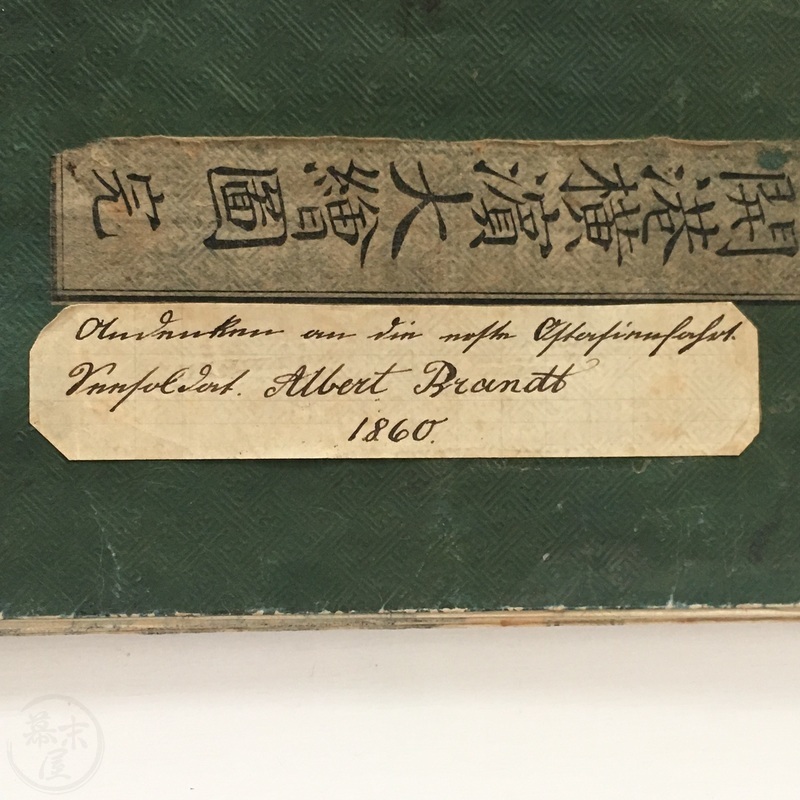 開港横濱大繪圖 完
Andenken an die erste Ostasienfahrt.
Seesoldat. Albert Brandt
1860.
幕末屋